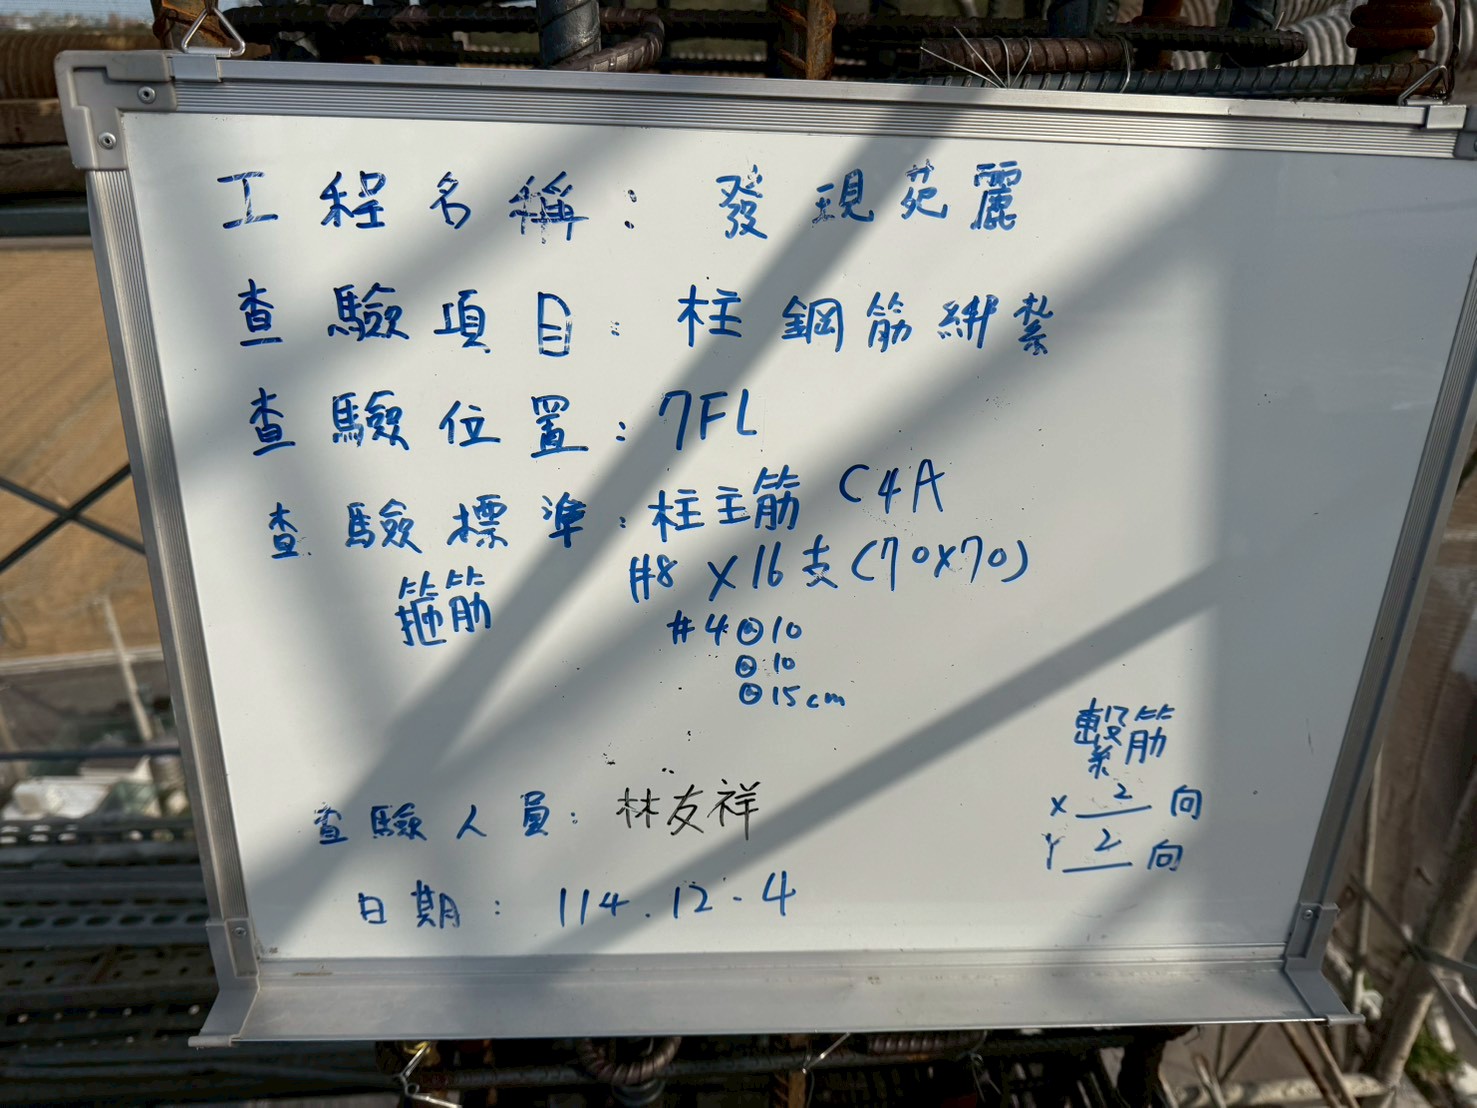 工程名稱：發現苑麗
查驗項目：柱鋼筋綁紮
查驗位置：7FL
查驗標準：柱主筋 C4A
#8 X 16支(70x70)
箍筋 #4@10
@10
@15cm
繫筋
X 2 向
Y 2 向
查驗人員：林友祥
日期：114.12.4